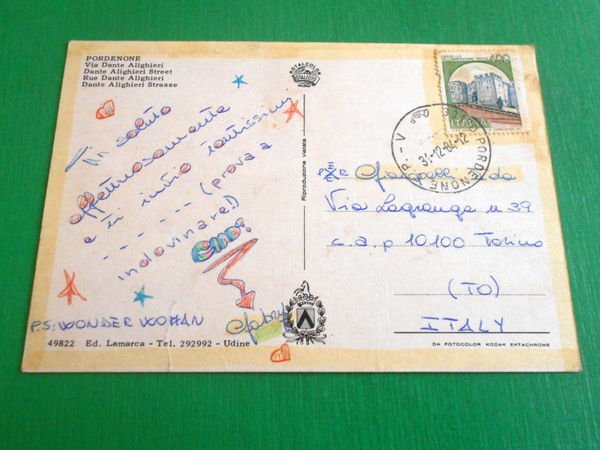 PORDENONE
Via Dante Alighieri
Dante Alighieri Street
Rue Dante Alighieri
Dante Alighieri Strasse
Un saluto
affettuosamente
e ti invio tantissimi
- - - - - - - (prova a
indovinare!)
CIAO!
P.S: WONDER WOMAN
49822 Ed. Lamarca - Tel. 292992 - Udine
ROTALCOLOR
ROTALFOTO
Riproduzione vietata
400
ITALIA
PORDENONE A.P. - V
31-12-84-12
Via Lagrange n 39
c.a.p 10100 Torino
(TO)
ITALY
DA FOTOCOLOR KODAK EKTACHROME